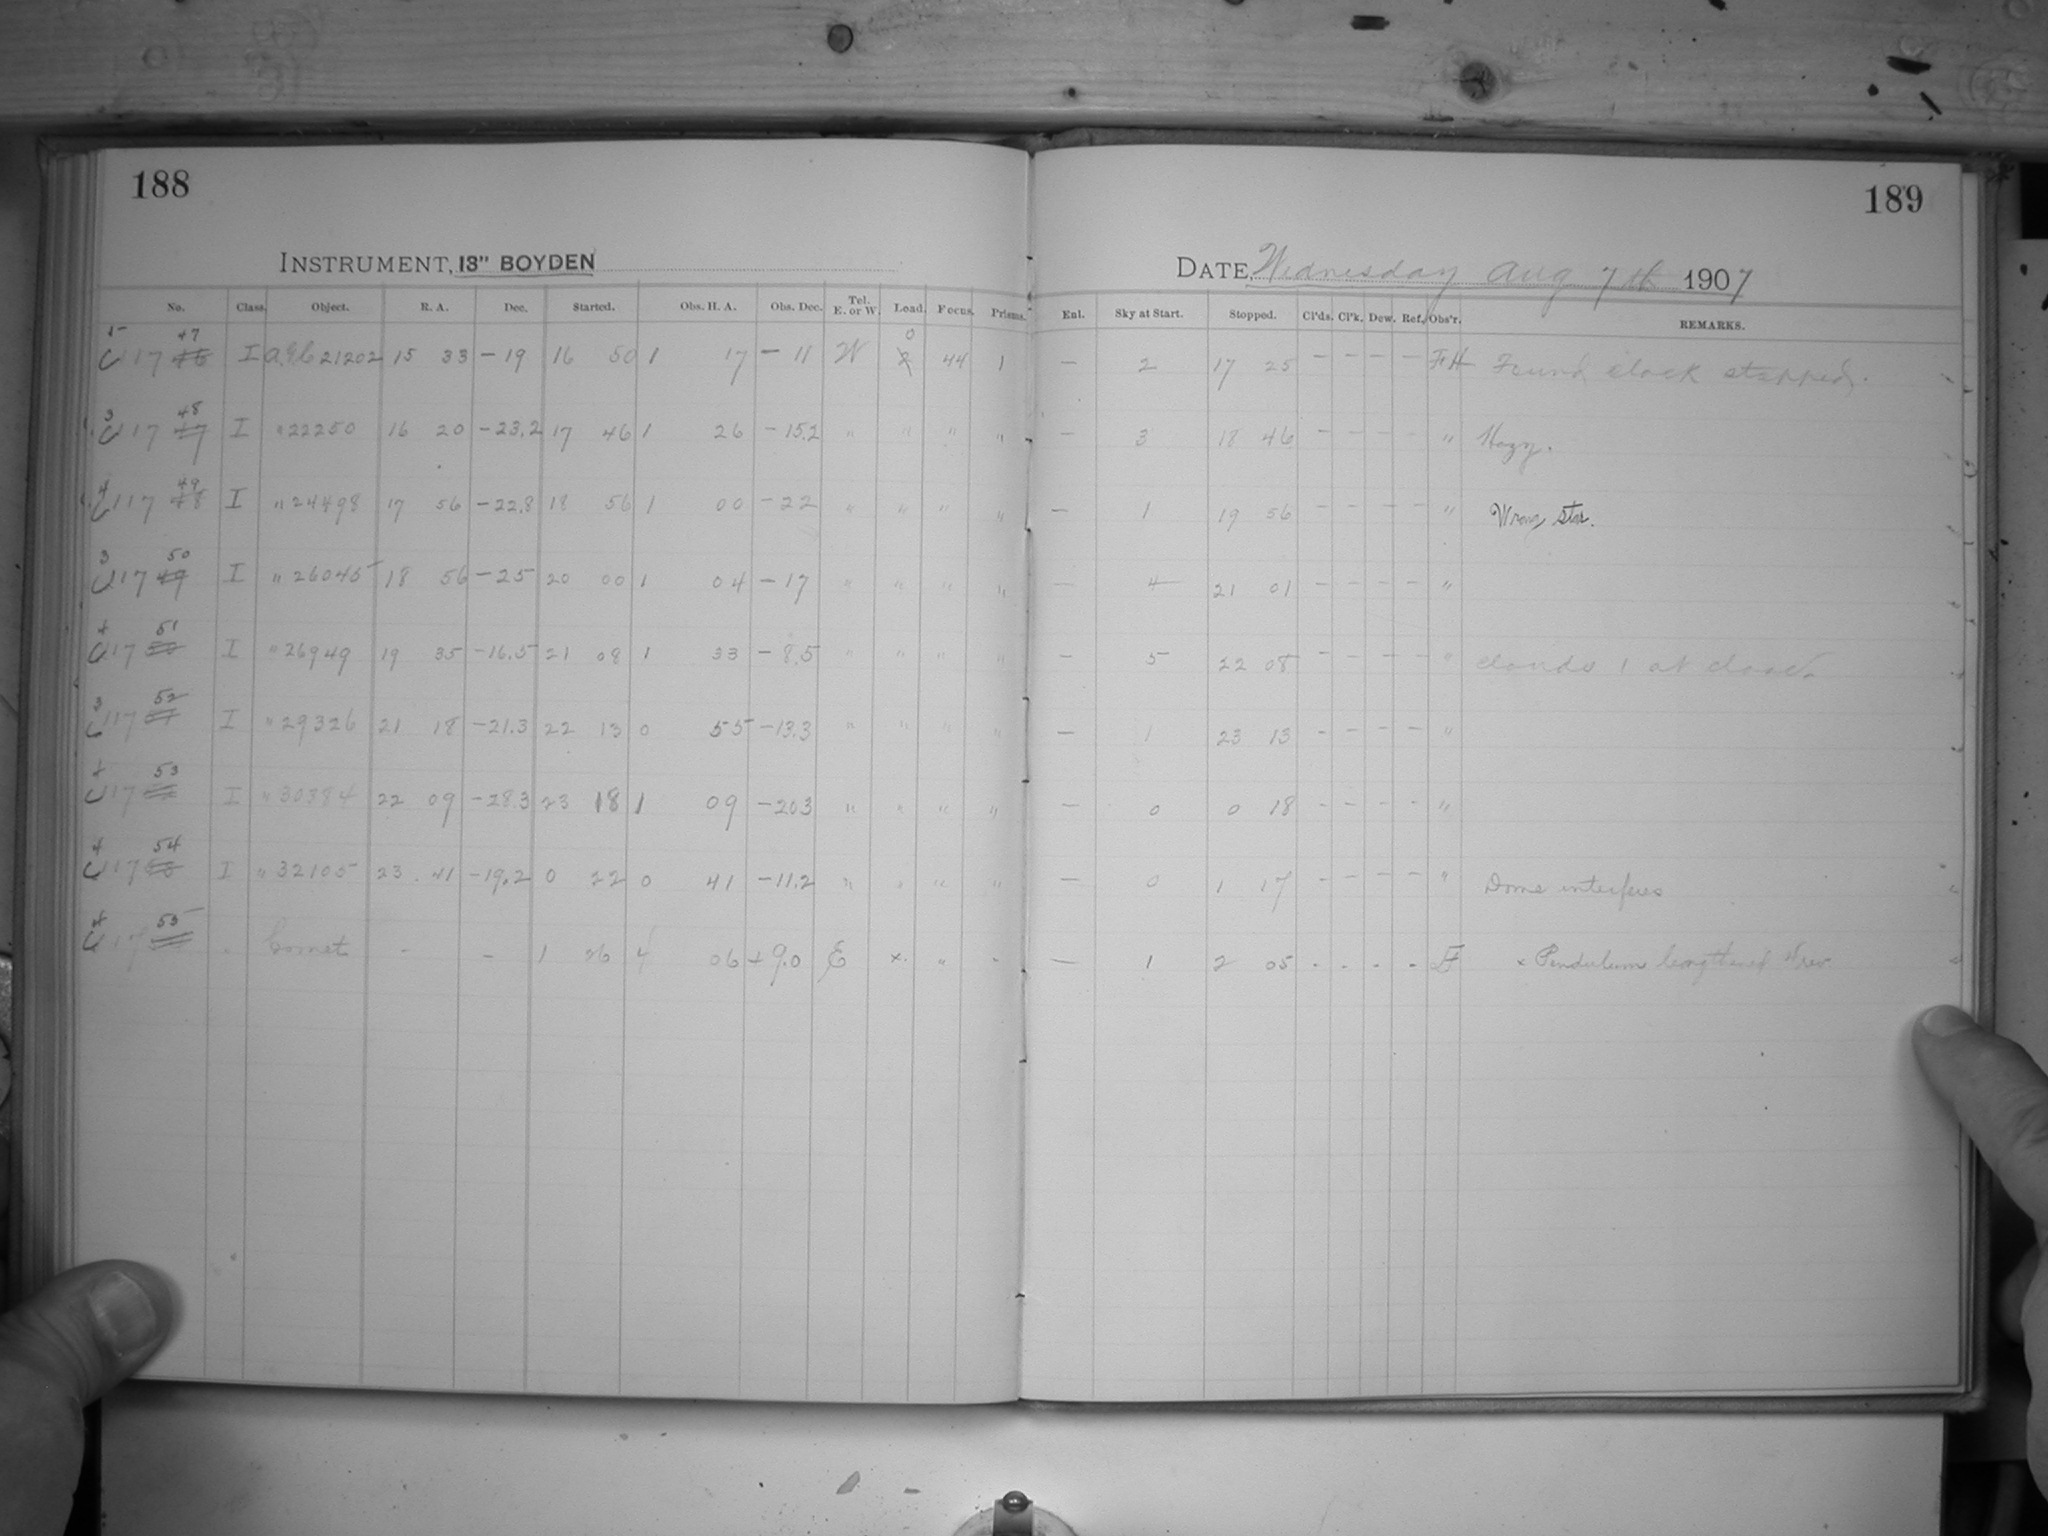 188
189
INSTRUMENT, 13" BOYDEN
DATE, Wednesday Aug 7th 1907
No. Class. Object. R. A. Dec. Started. Obs. H. A. Obs. Dec. Tel. E. or W. Load. Focus. Prisms. Enl. Sky at Start. Stopped. Cl'ds. Cl'k. Dew. Ref. Obs'r. REMARKS.
17 47 I 21202 15 33 - 19 16 50 1 17 - 11 W 0 44 1 - 2 17 25 - - - - FH Found clock stopped.
3 17 48 I " 22250 16 20 - 23.2 17 46 1 26 - 15.2 " " " " - 3 18 46 - - - - " Hazy.
4 117 49 I " 24498 17 56 - 22.8 18 56 1 00 - 22 " " " " - 1 19 56 - - - - " Wrong star.
3 17 50 I " 26045 18 56 - 25 20 00 1 04 - 17 " " " " - 4 21 01 - - - - "
4 17 51 I " 26949 19 35 - 16.5 21 08 1 33 - 8.5 " " " " - 5 22 08 - - - - " clouds 1 at close.
3 117 52 I " 29326 21 18 - 21.3 22 13 0 55 - 13.3 " " " " - 1 23 13 - - - - "
4 17 53 I " 30384 22 09 - 28.3 23 18 1 09 - 20.3 " " " " - 0 0 18 - - - - "
4 117 54 I " 32105 23 41 - 19.2 0 22 0 41 - 11.2 " " " " - 0 1 17 - - - - " Dome interferes
4 17 55 Comet - - 1 26 4 06 + 9.0 E x " - - 1 2 05 - - - - F x Pendulum lengthened rev